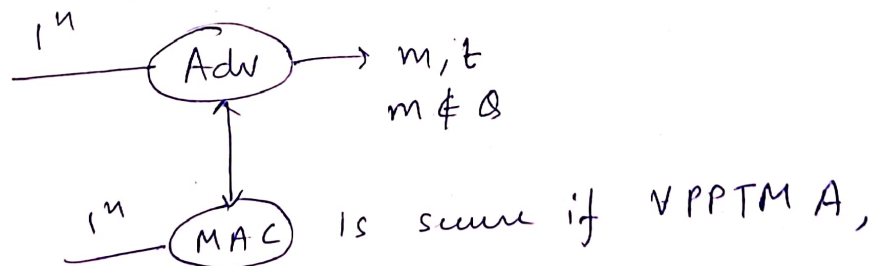 1ⁿ
Adv → m, t
m ∉ Q
1ⁿ
MAC is secure if ∀ PPTM A,